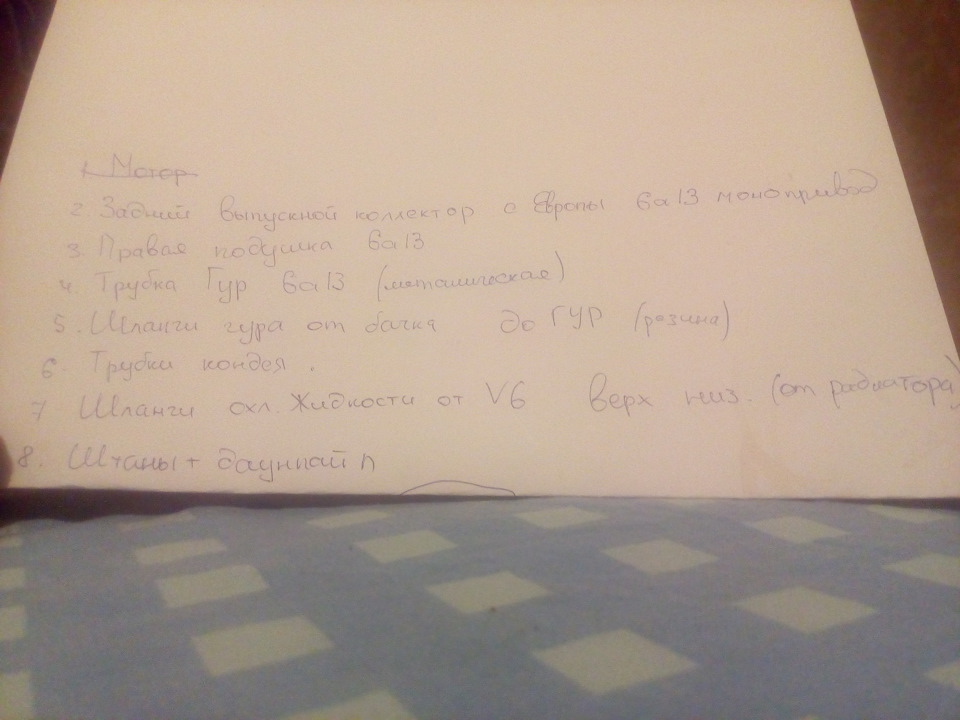 1. Мотор
2. Задний выпускной коллектор с Европы 6а13 монопривод
3. Правая подушка 6а13
4. Трубка Гур 6а13 (металическая)
5. Шланги гура от бачка до ГУР (резина)
6. Трубки кондея.
7 Шланги охл. Жидкости от V6 верх низ. (от радиатора)
8. Штаны + даунпай п